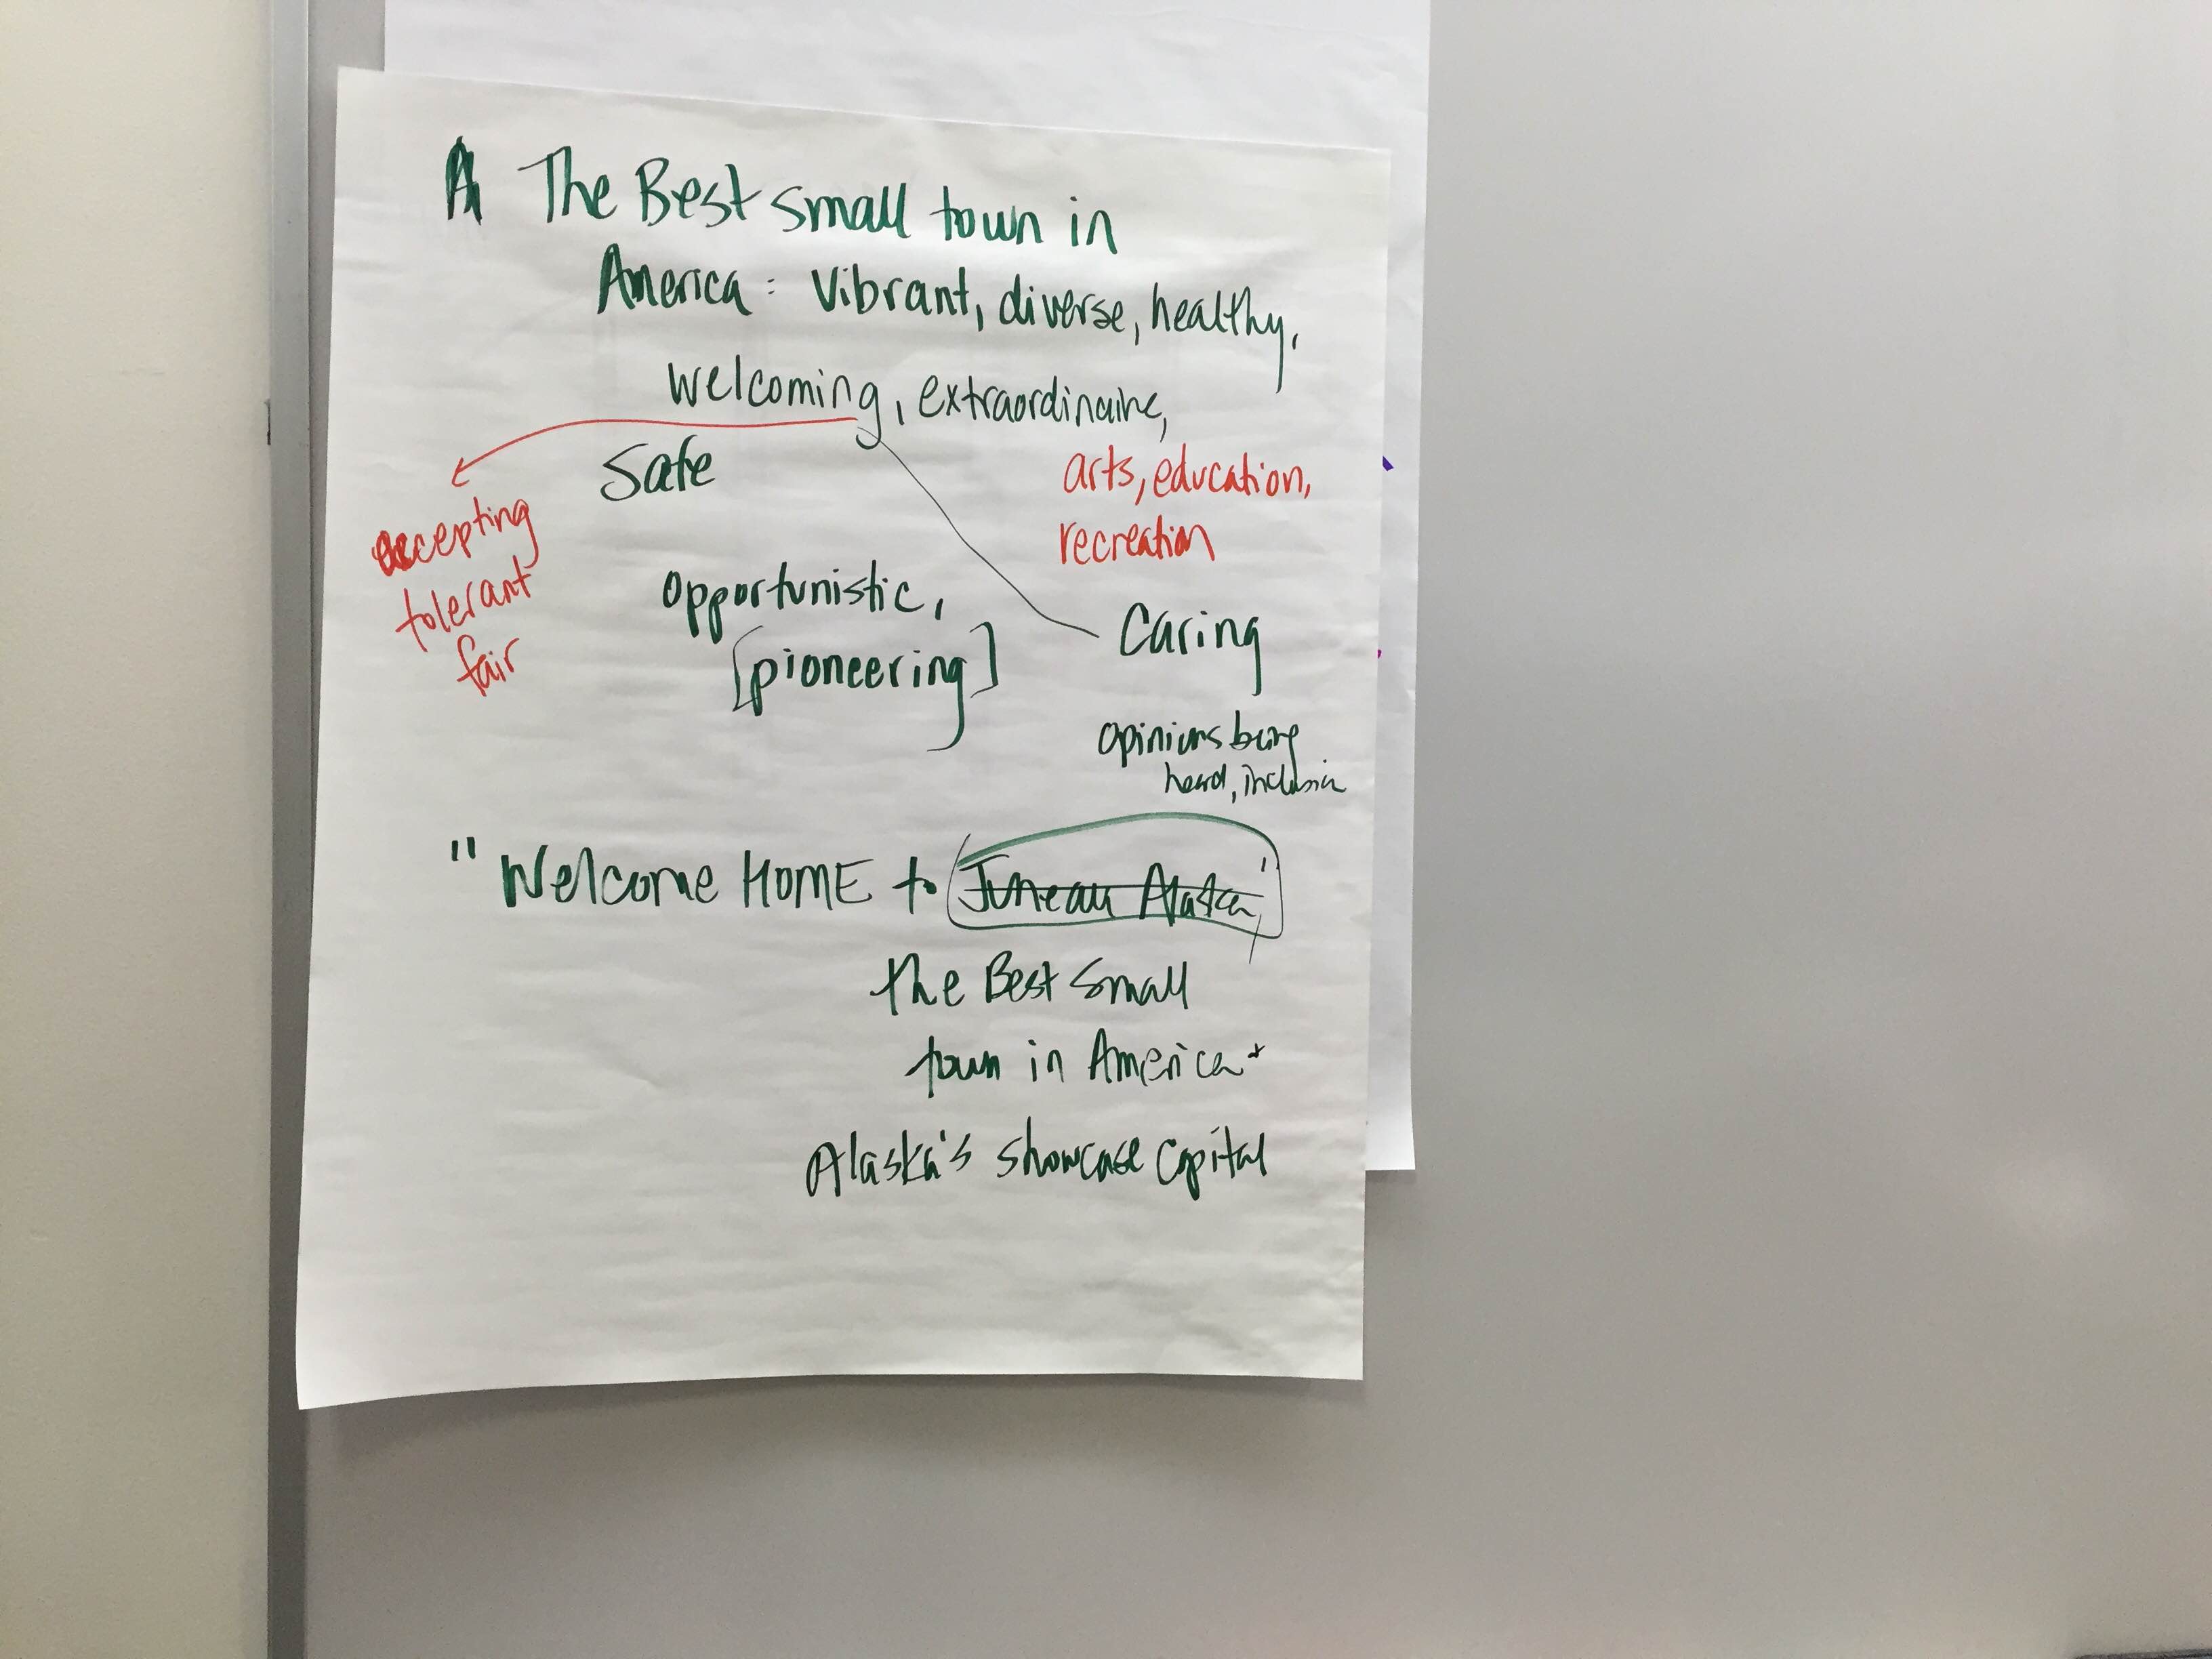 A The Best small town in
America: Vibrant, diverse, healthy,
welcoming, extraordinaire,
Safe
arts, education,
recreation
accepting
tolerant
fair
opportunistic,
[pioneering]
Caring
opinions being
heard, inclusion
"Welcome HOME to Juneau Alaska,"
the Best Small
town in America +
Alaska's showcase capital